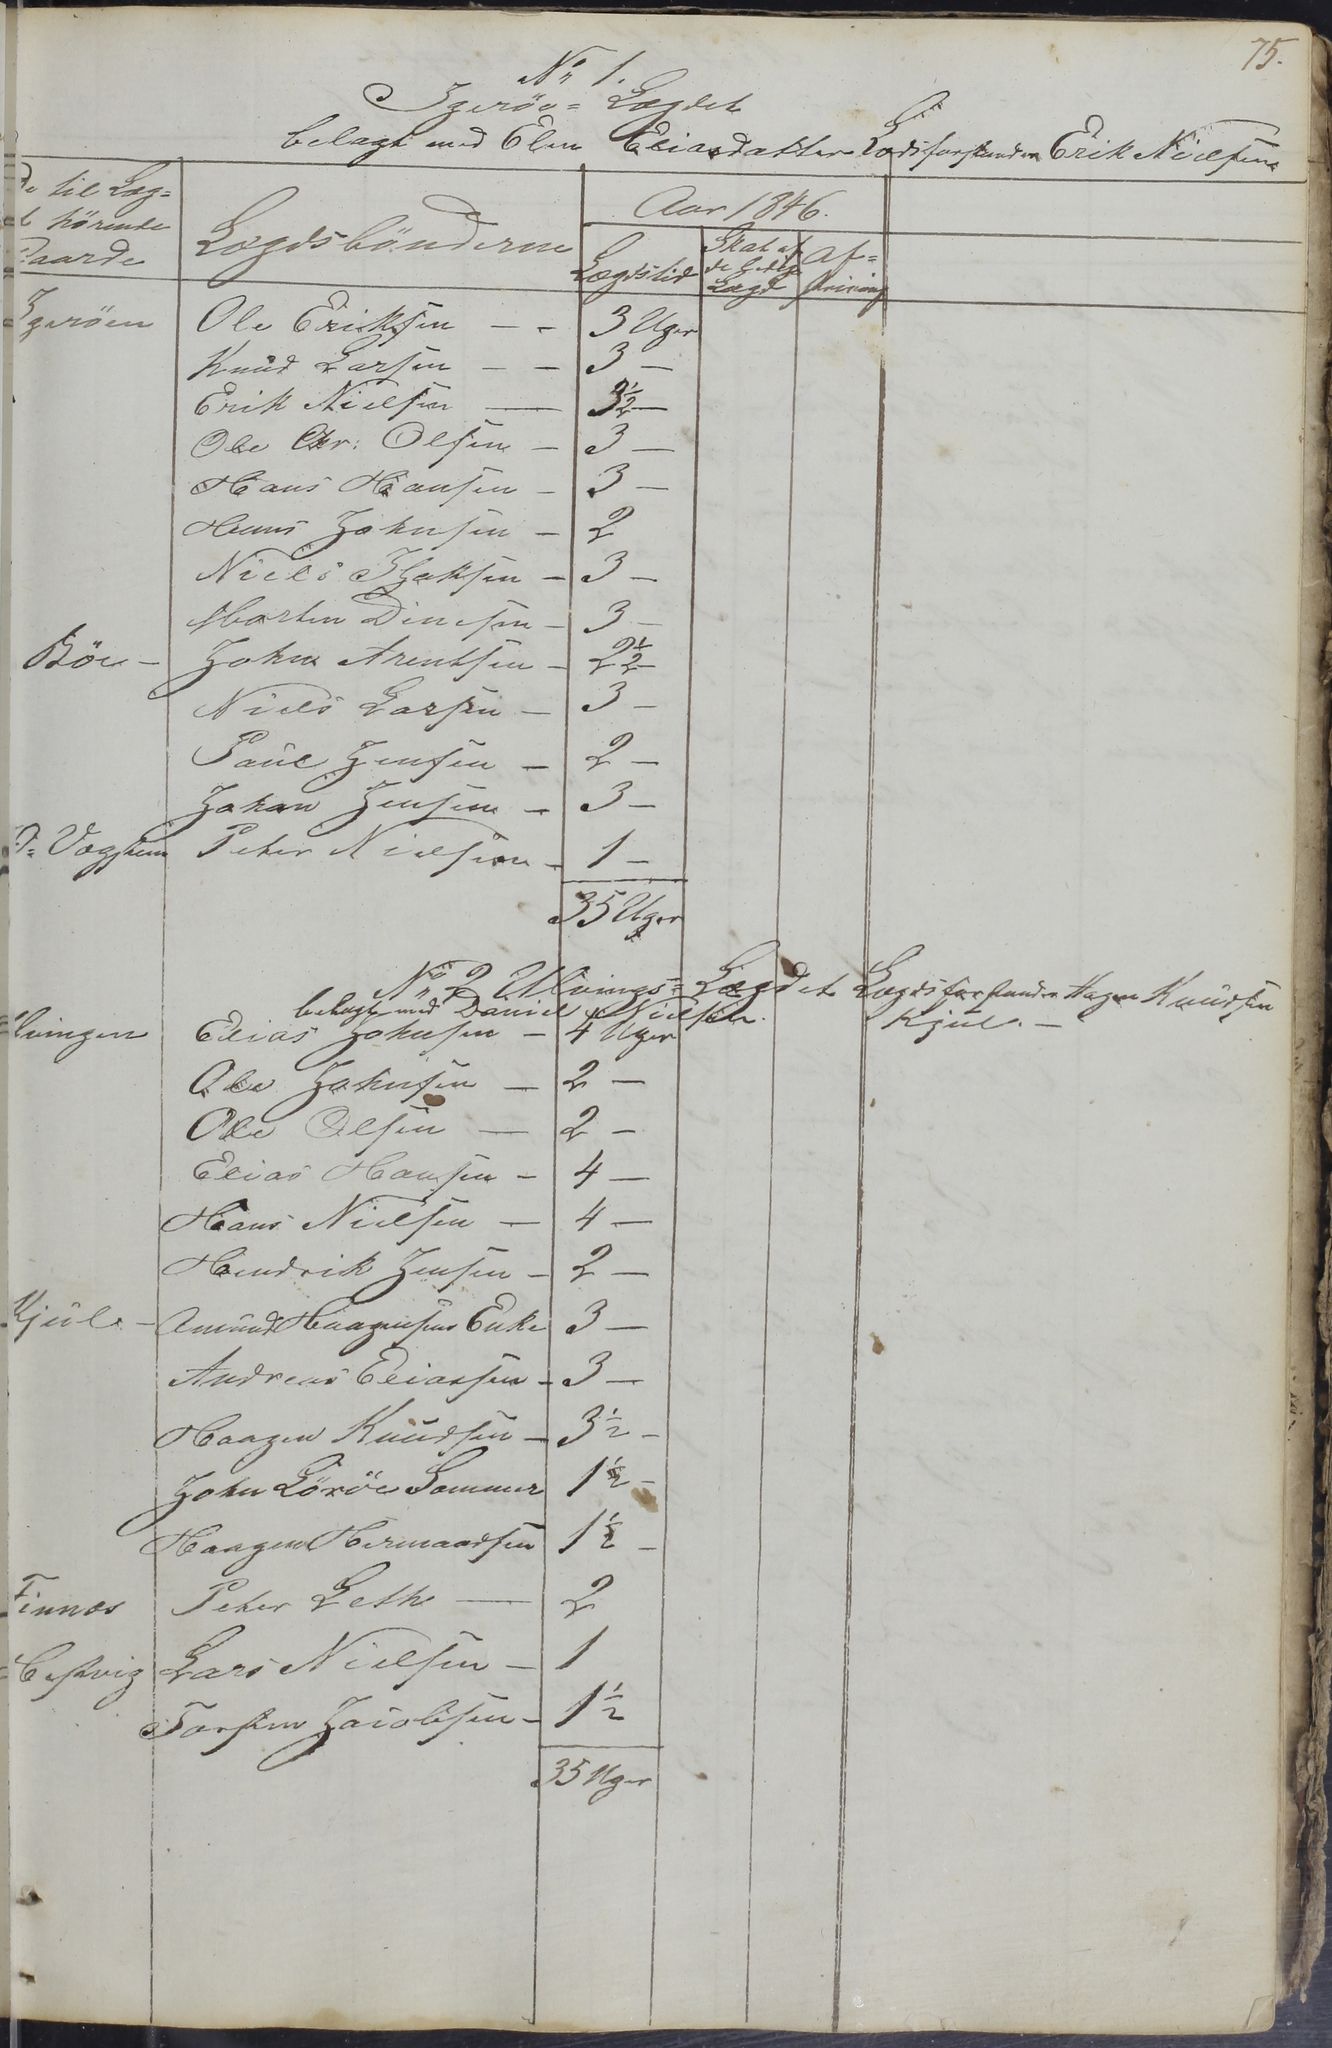 75.
No 1.
Igerøe= Lægdet
belagt med Elen Eliasdatter Lægdsforstander Erik Nielsen
De til Læg=
det hörende
Gaarde
Lægdsbönderne
Aar 1846.
Lægdstid
Skat af
de ledige
Lægd
Af=
skrivning
Igerøen Ole Eriksen — - 3 Uger
Knud Larsen — - 3 —
Erik Nielsen — 3½ —
Ole Chr: Olsen — 3 —
Hans Hansen — 3 —
Hans Johnsen — 2
Niels Isaksen — 3 —
Morten Dinesen — 3 —
Böe — John Arentsen — 2½ —
Niels Larsen — 3 —
Paul Jensen — 2 —
Johan Jensen — 3 —
Vægsteen Peter Nielsen — 1 —
35 Uger
No 2 Ulvings= Lægdet Lægdsforstander Hagen Knudsen
belagt med Daniel Nielsen. Kjul. —
Ulvingen Elias Johnsen — 4 Uger
Ole Johnsen — 2 —
Ole Olsen — 2 —
Elias Hansen — 4 —
Hans Nielsen — 4 —
Hendrik Jensen — 2 —
Kjul — Amund Haagensens Enke 3 —
Andreas Eliassen — 3 —
Haagen Knudsen — 3½ —
John Löröe Sommer 1½ —
Haagen Hermandsen 1½ —
Finnæs Peter Leth — 2
Lars Nielsen — 1
Torsten Jacobsen — 1½
35 Uger